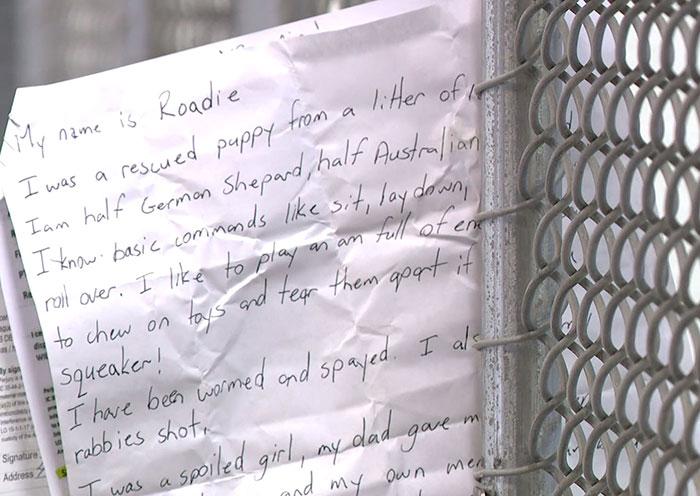 My name is Roadie
I was a rescued puppy from a litter of
I am half German Shepard, half Australian
I know basic commands like sit, lay down,
roll over. I like to play an am full of ene
to chew on toys and tear them apart if
squeaker!
I have been wormed and spayed. I als
rabbies shot.
I was a spoiled girl, my dad gave m
and my own
Signature
Address